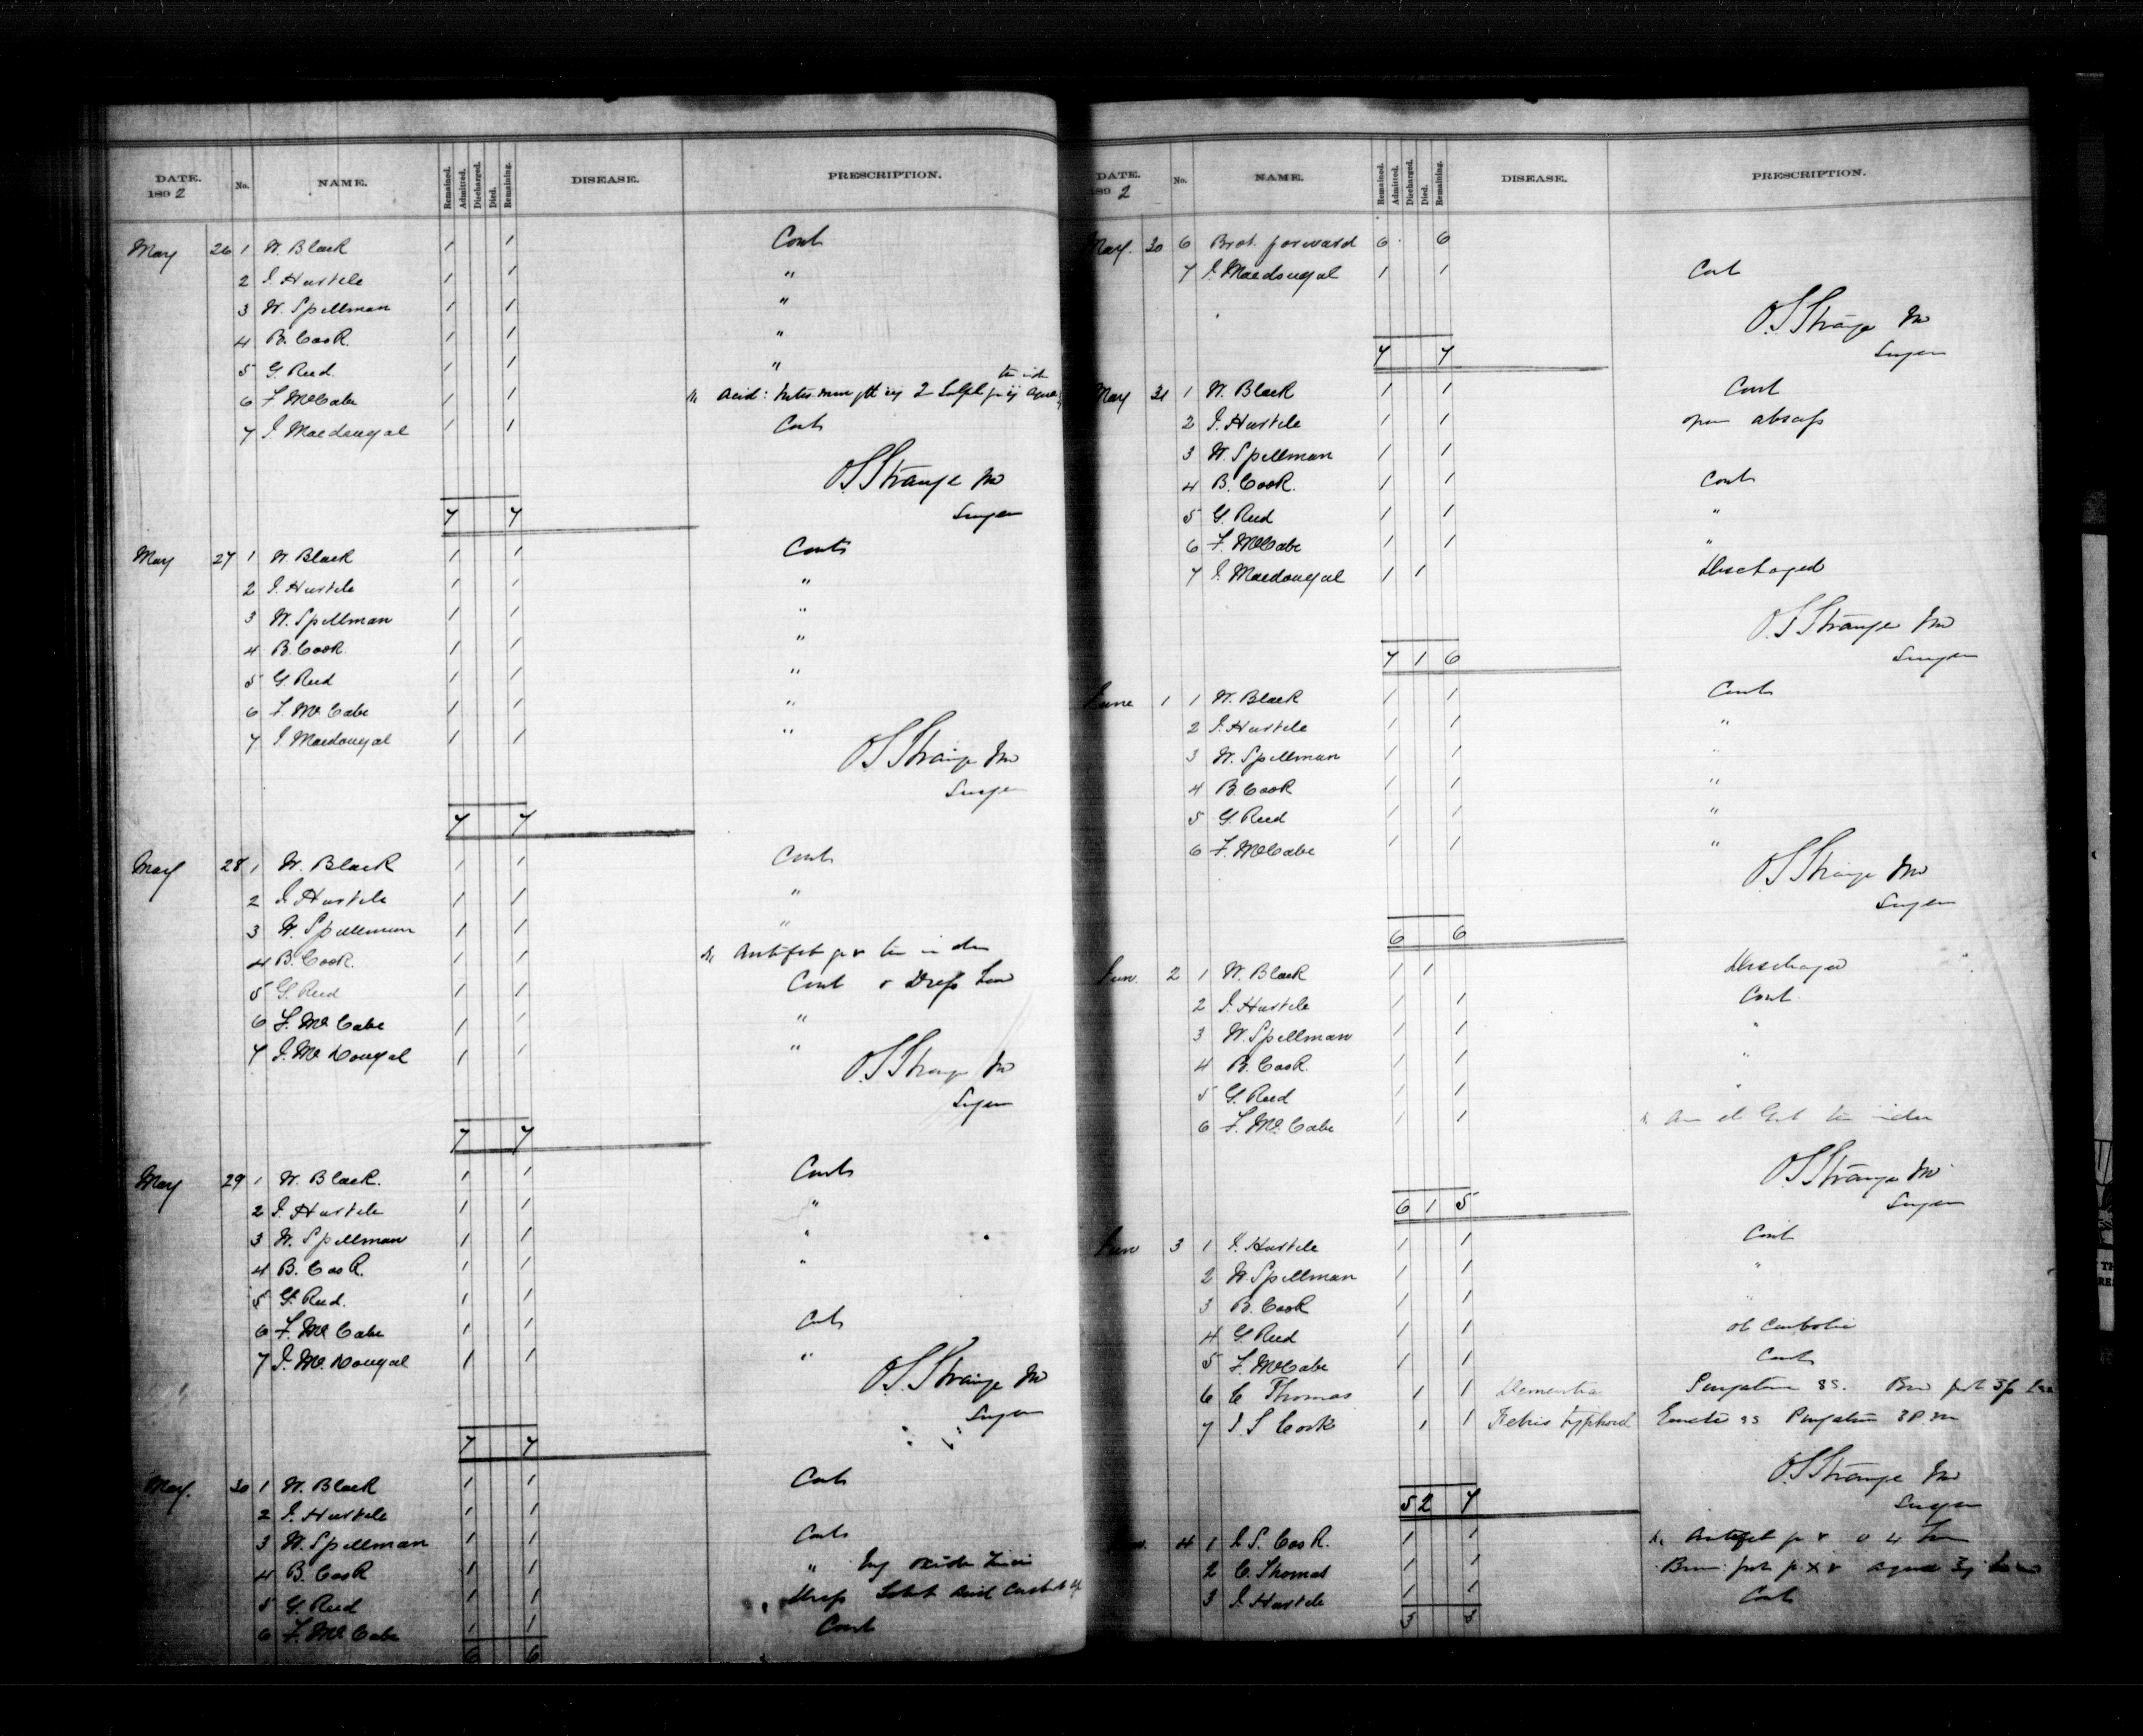 DATE. 1892 No. NAME. Remained. Admitted. Discharged. Died. Remaining. DISEASE. PRESCRIPTION.
May 26 1 W. Black 1 1 Cont
2 J. Hustele 1 1 "
3 W. Spellman 1 1 "
4 B. Cook. 1 1 "
5 G. Reed. 1 1 "
6 F. McCabe 1 1 Acid:
7 J. Macdougal 1 1 Cont
O S Strange MD
7 7 Surgeon
May 27 1 W. Black 1 1 Cont
2 J. Hustele 1 1 "
3 W. Spellman 1 1 "
4 B. Cook 1 1 "
5 G. Reed 1 1 "
6 F. McCabe 1 1 "
7 J. Macdougal 1 1 "
O S Strange MD
Surgeon
7 7
May 28 1 W. Black 1 1 Cont
2 J. Hustele 1 1 "
3 W. Spellman 1 1 "
4 B. Cook. 1 1
5 G. Reed 1 1 Cont
6 F. McCabe 1 1 "
7 J. McDougal 1 1 "
O S Strange MD
Surgeon
7 7
May 29 1 W. Black. 1 1 Cont
2 J. Hustele 1 1 "
3 W. Spellman 1 1 "
4 B. Cook. 1 1 "
5 G. Reed. 1 1
6 F. McCabe 1 1 Cont
7 J. McDougal 1 1 "
O. S. Strange MD
Surgeon
7 7
May. 30 1 W. Black 1 1 Cont
2 J. Hustele 1 1
3 W. Spellman 1 1 Cont
4 B. Cook 1 1 "
5 G. Reed 1 1
6 F. McCabe 1 1 Cont
6 6
DATE. 1892 No. NAME. Remained. Admitted. Discharged. Died. Remaining. DISEASE. PRESCRIPTION.
May. 30 6 Brot. forward 6 6
7 J. Macdougal 1 1 Cont
O. S Strange MD
7 7 Surgeon
May 31 1 W. Black 1 1 Cont
2 J. Hustele 1 1 open abscess
3 W. Spellman 1 1
4 B. Cook. 1 1 Cont
5 G. Reed 1 1 "
6 F. McCabe 1 1 "
7 J. Macdougal 1 1 Discharged
O. S Strange MD
7 1 6 Surgeon
June 1 1 W. Black 1 1 Cont
2 J. Hustele 1 1 "
3 W. Spellman 1 1 "
4 B. Cook 1 1 "
5 G. Reed 1 1 "
6 F. McCabe 1 1 "
O S Strange MD
Surgeon
6 6
June 2 1 W. Black 1 1 Discharged
2 J. Hustele 1 1 Cont
3 W. Spellman 1 1 "
4 B. Cook. 1 1 "
5 G. Reed 1 1 "
6 F. McCabe 1 1
O S Strange MD
6 1 5 Surgeon
June 3 1 J. Hustele 1 1 Cont
2 W Spellman 1 1 "
3 B. Cook 1 1 "
4 G. Reed 1 1 ol Carbolic
5 F. McCabe 1 1 Cont
6 C Thomas 1 1 Dementia
7 J. S Cook 1 1 Febris typhoid
O S Strange MD
5 2 7 Surgeon
4 1 J. S. Cook. 1 1
2 C. Thomas 1 1
3 J. Hustele 1 1 Cont
3 3